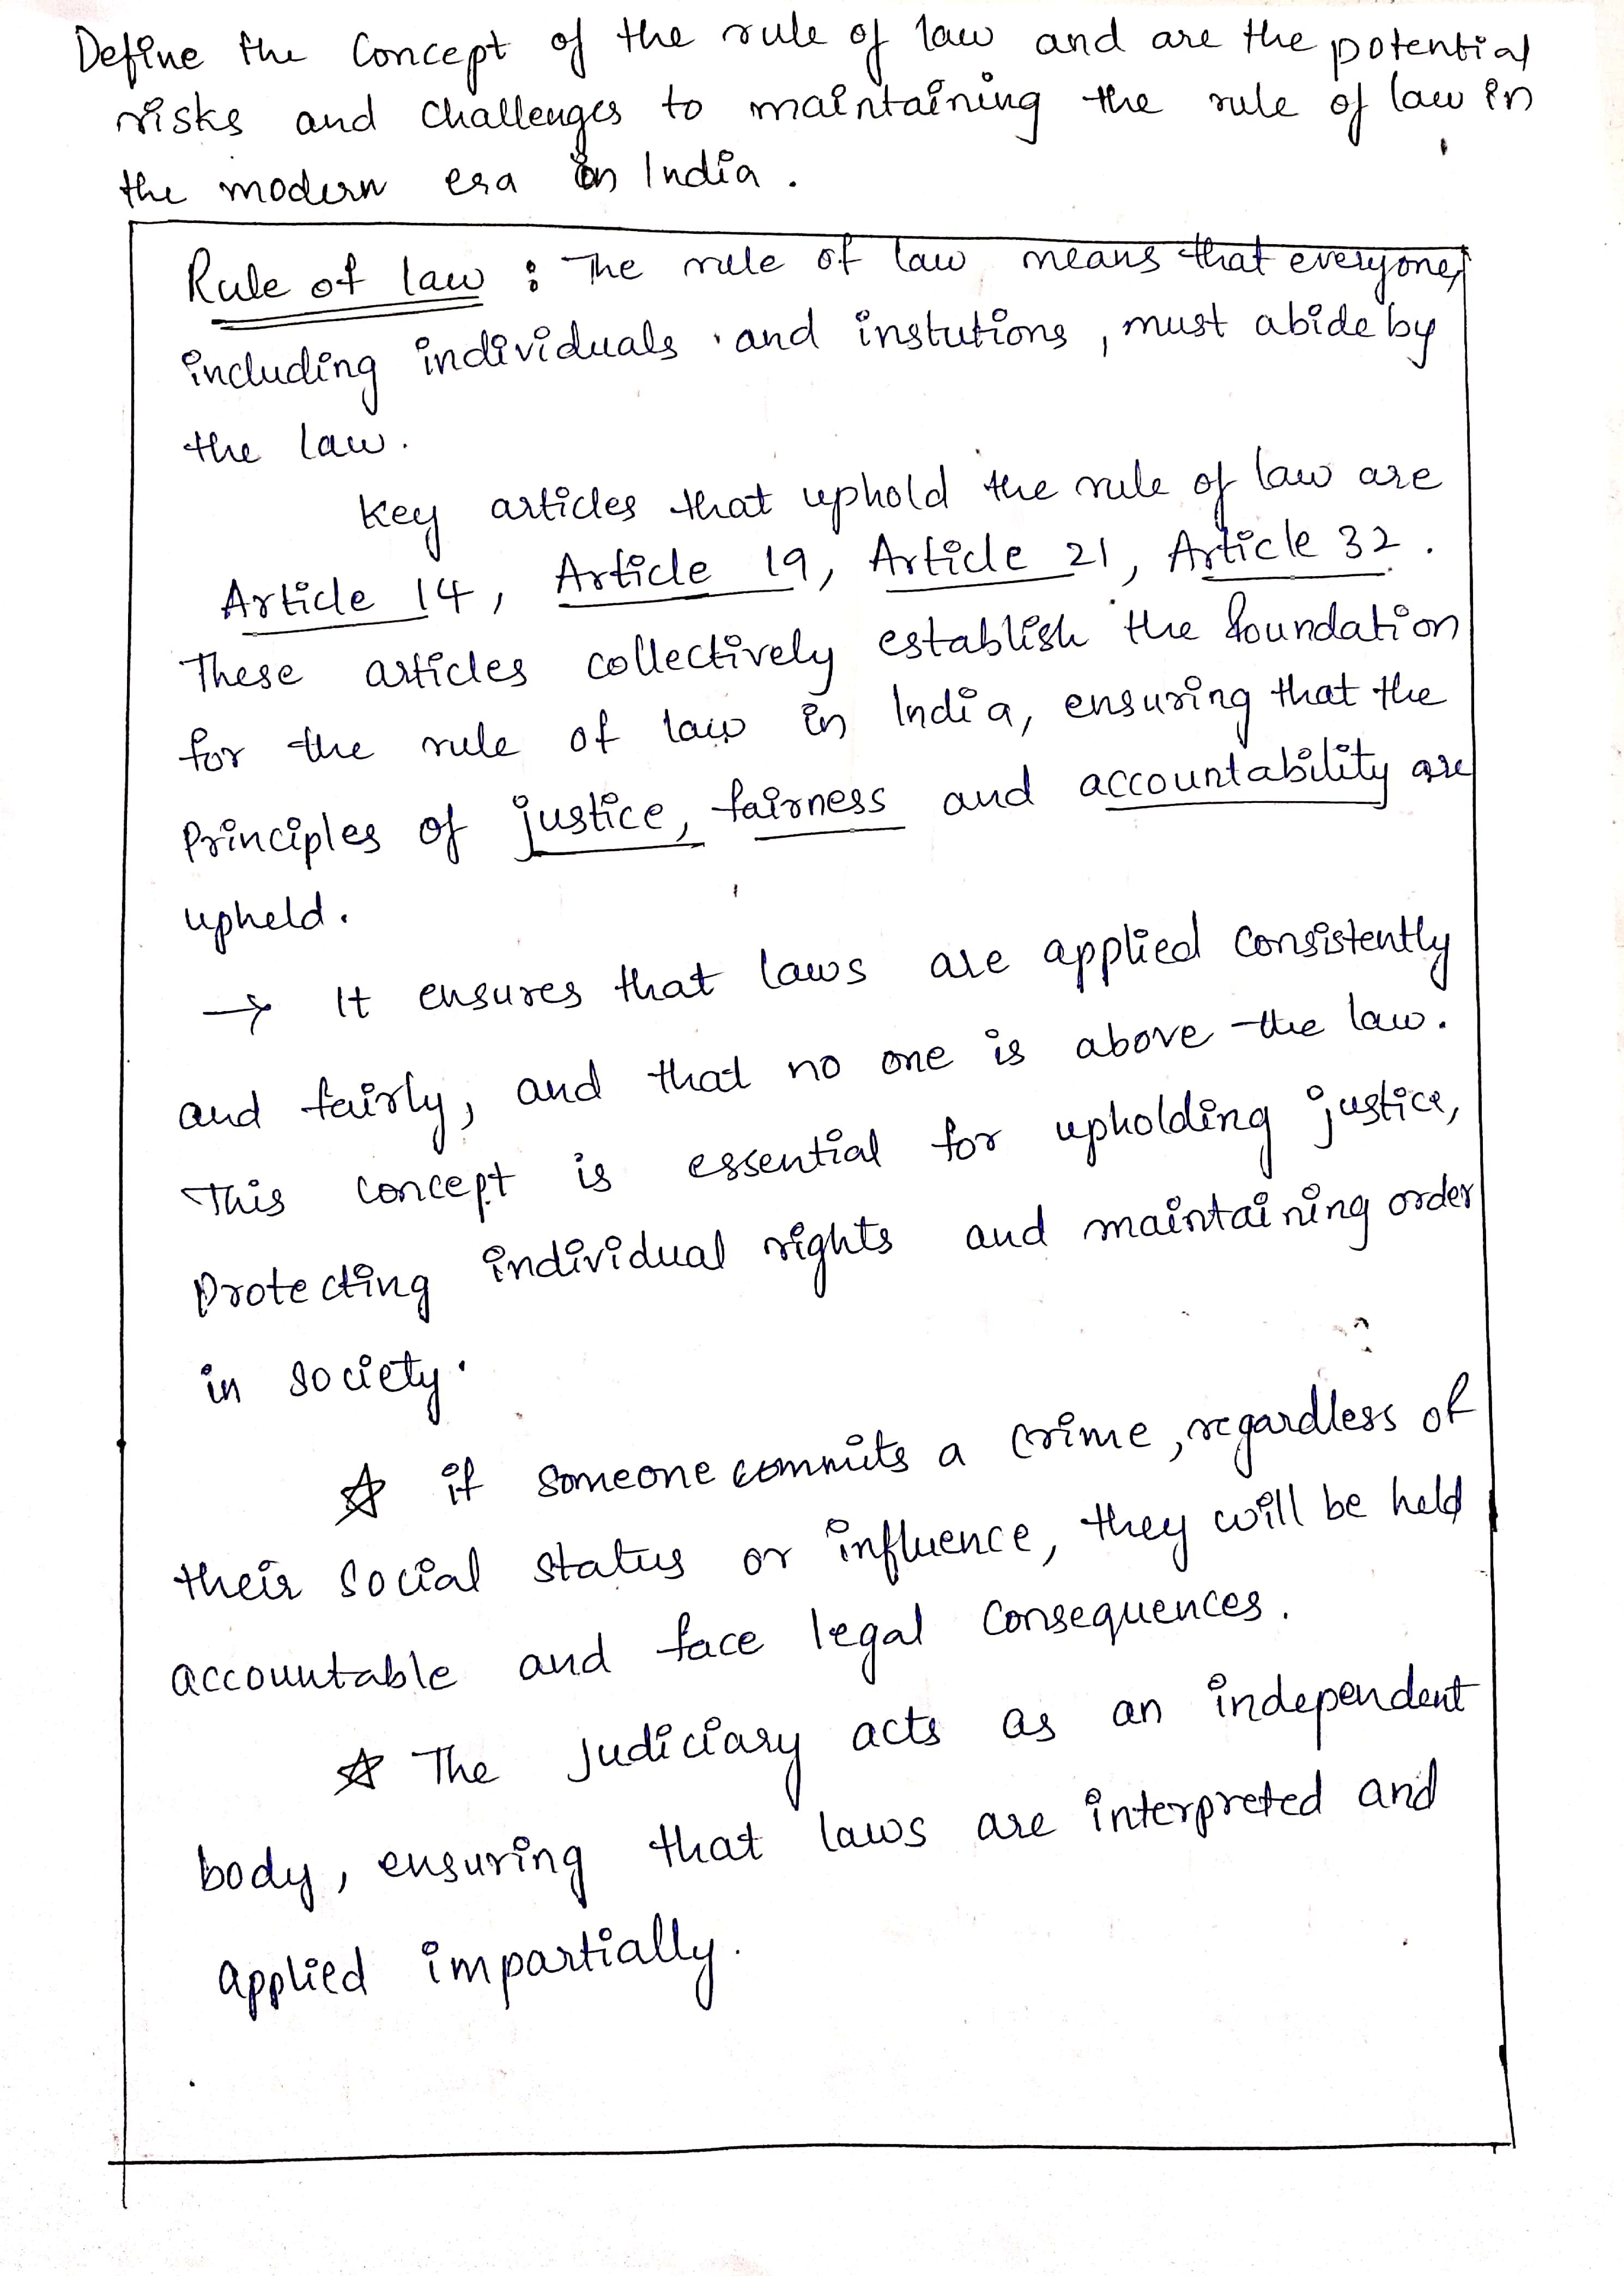 Define the Concept of the rule of law and are the potential
risks and challenges to maintaining the rule of law in
the modern era in India.
Rule of law : The rule of law means that everyone,
including individuals and instutions, must abide by
the law.
Key articles that uphold the rule of law are
Article 14, Article 19, Article 21, Article 32.
These articles collectively establish the foundation
for the rule of law in India, ensuring that the
Principles of justice, fairness and accountability are
upheld.
→ It ensures that laws are applied consistently
and fairly, and that no one is above the law.
This concept is essential for upholding justice,
Protecting individual rights and maintaining order
in society.
☆ if someone commits a crime, regardless of
their social status or influence, they will be held
accountable and face legal consequences.
☆ The judiciary acts as an independent
body, ensuring that laws are interpreted and
applied impartially.